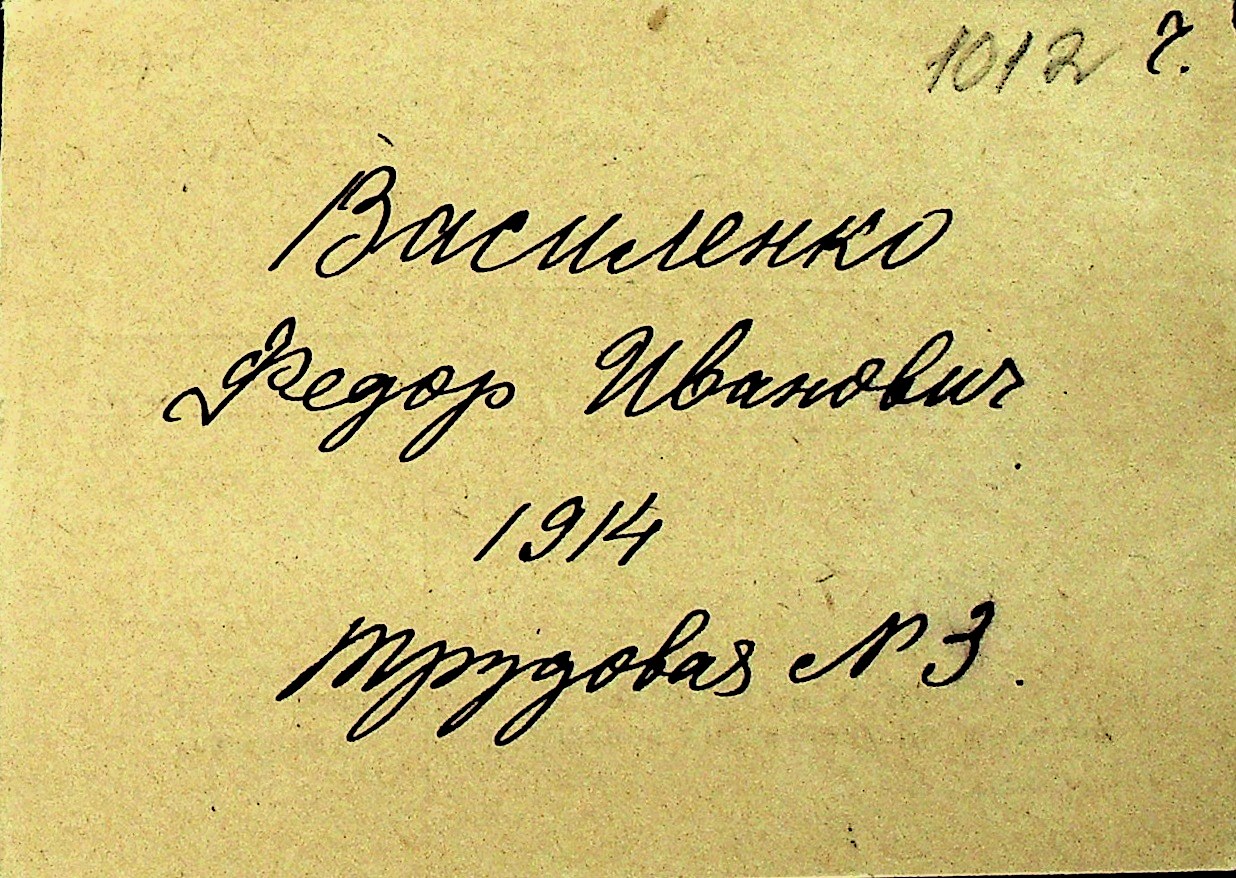 1012 г.
Василенко
Федор Иванович
1914
Трудовая N 3.